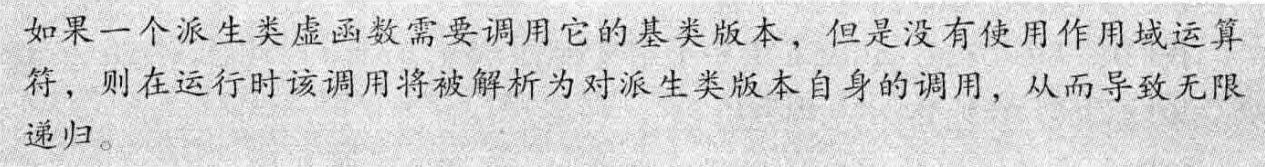 如果一个派生类虚函数需要调用它的基类版本，但是没有使用作用域运算
符，则在运行时该调用将被解析为对派生类版本自身的调用，从而导致无限
递归。